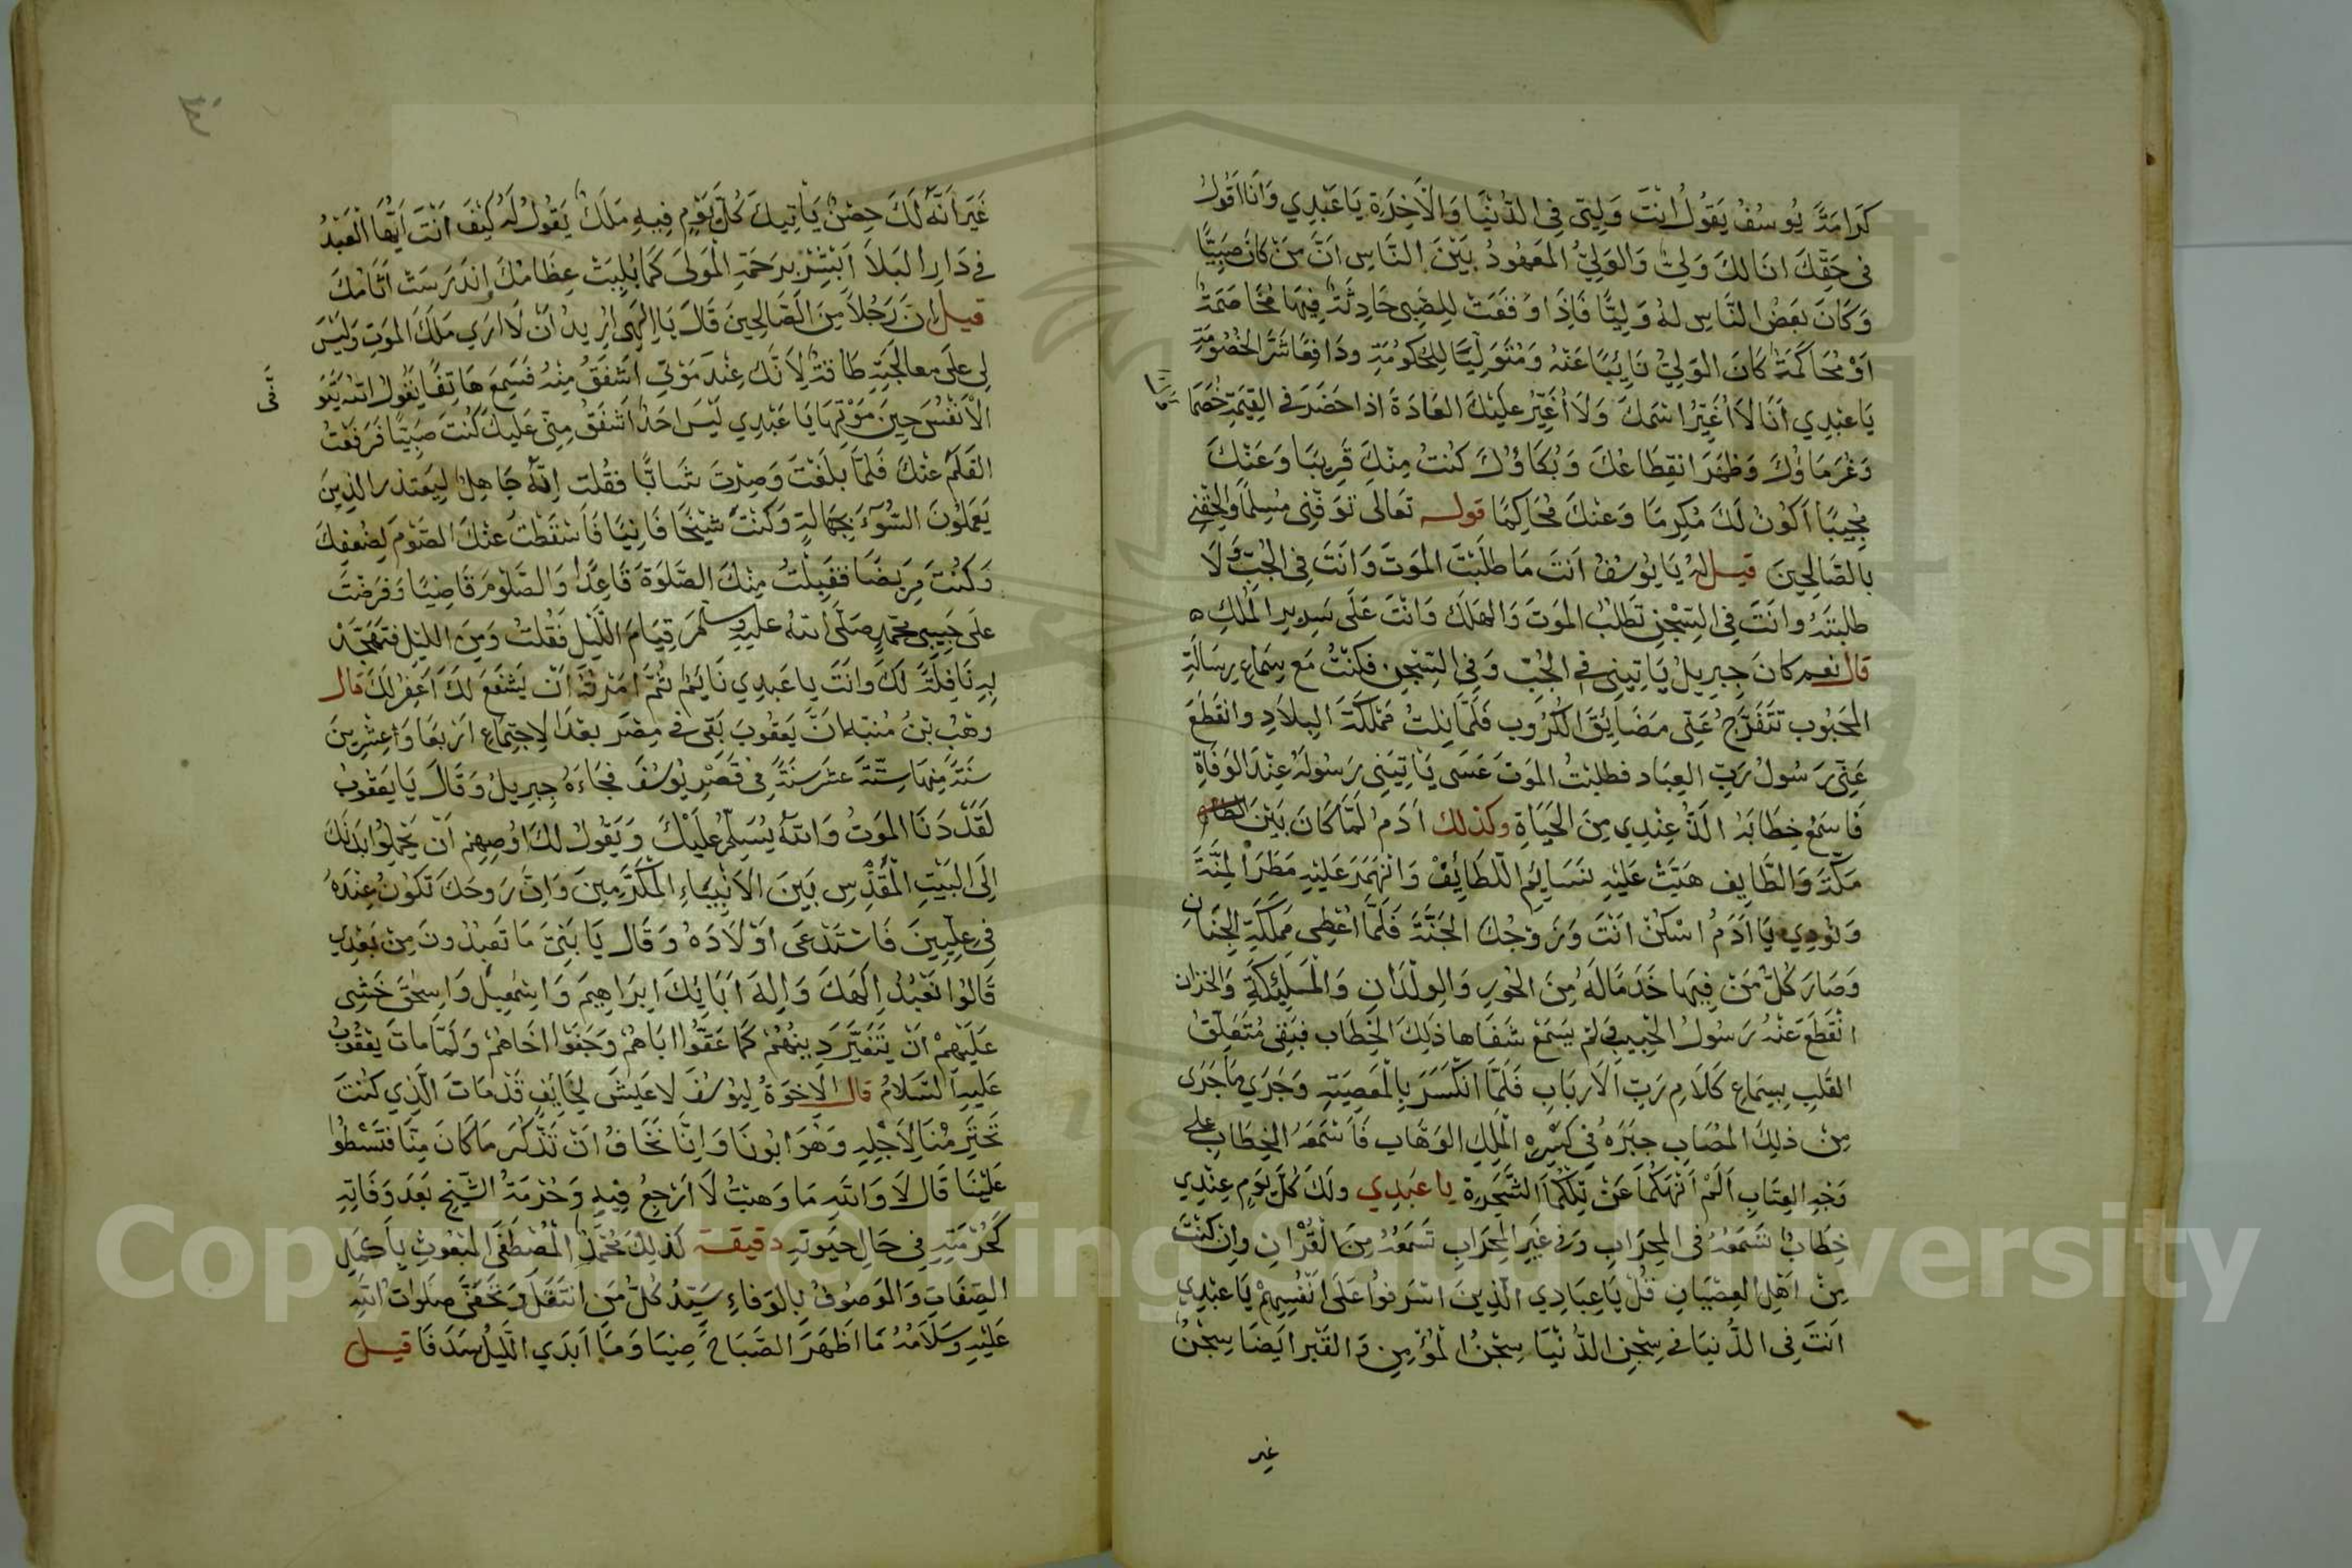 كَرَامَةَ يُوسُفُ يَقُولُ اَنْتَ وَلِيّى فِى الدُّنْيَا وَالْاَخِرَةِ يَا عَبْدِي وَاَنَا اَقُولُ
فى حَقِّكَ انَا لَكَ وَلِىٌّ وَالوَلِىُّ المَعْهُودُ بَيْنَ النَّاسِ اَنَّ مَنْ كَانَ صَبِيًّا
وَكَانَ بَعْضُ النَّاسِ لَهُ وَلِيًّا فَاِذَا وَقَعَتْ لِلصَّبِى حَادِثَةٌ فِيهَا مُخَاصَمَةٌ
اَوْ مُحَاكَمَةٌ كَانَ الوَلِىُّ نَائِبًا عَنْهُ وَمُتَوَلِّيًا لِلْحُكُومَةِ ودَافِعًا شَرَّ الخُصُومَةِ
يَا عَبْدِي اَنَا لَا اُغَيِّرُ اسْمَكَ وَلَا اُغَيِّرُ عَلَيْكَ العَادَةَ اذا حَضَرَ فى القِيمَةِ خُصَمَا
وَغُرَمَاؤُكَ وَظَهَرَ انْقِطَاعُكَ وَبُكَاؤُكَ كُنْتُ مِنْكَ قَرِيبًا وَعَنْكَ
مُجِيبًا اَكُونُ لَكَ مُكْرِمًا وَعَنْكَ مُحَاكِمًا قوله تَعَالَى تَوَفَّنِى مُسْلِمًا وَاَلْحِقْنِى
بِالصَّالِحِينَ قيل له يَا يُوسُفُ اَنتَ مَا طَلَبْتَ المَوتَ وَانَتَ فِى الجُبِّ وَلَا
طلبتَهُ وانَتَ فِى السِّجْنِ تَطْلُبُ المَوتَ وَالهَلَكَ وَانْتَ عَلَى سَرِيرِ المُلْكِ ه
قال نعم كانَ جِبْرِيلُ يَاتِينِى فى الجُبِّ وَفِى السِّجْنِ فَكُنْتُ مَع سِمَاعِ رِسَالَةِ
المَحْبُوبِ تَتَفَرَّجُ عَنِّى مَضَايِقَ الكُرُوبِ فَلَمَّا نِلْتُ مَمْلَكَةَ البِلَادِ وانْقَطَعَ
عَنِّى رَسُولُ رَبِّ العِبَاد فطلبْتُ المَوتَ عَسَى يَاتِيَنِى رَسُولُهُ عِنْدَ الوَفَاةِ
فَاسْمَعُ خِطَابَهُ الَذُّ عِنْدِي مِنَ الحَيَاةِ وكذلك ادَمُ لَمَّا كَانَ بَيْنَ
مَكَّةَ وَالطَّايِفِ هَبَّتْ عَلَيْهِ نَسَايِمُ اللَّطَايِفْ وَانْهَمَرَ عَلَيْهِ مَطَرُ الْمِنَّةَ
وَنُودِي يَا اَدَمُ اسْكُنْ انْتَ وَزَوْجُكَ الجَنَّةَ فَلَمَّا اُعْطِى مَمْلَكَةِ الجِنَانِ
وَصَارَ كُلُّ مَنْ فِيهَا خَدَمًا لَهُ مِنَ الحُورِ وَالوِلْدَانِ وَالْمَلَيْكَةِ وَالخزان
انْقَطَعَ عَنْهُ رَسُولُ الحَبِيبِ وَلَمْ يَسْمَعْ شَفَاها ذَلِكَ الخِطَابِ فَبَقِى مُتَعَلِّقُ
القَلبِ بِسِمَاعِ كَلَامِ رَبِّ الَارْبَابِ فَلَمَّا انْكَسَرَ بِالمَعصِيَةِ وَجَرَي مَا جَرَى
مِنْ ذلِكَ المُصَابِ جَبَرَهُ فِى كَسْرِهِ الْمَلِكِ الوَهَّابِ فَاَسْمَعَهُ الخِطَابِ على
وَجْهِ العِتَابِ اَلَمْ اَنْهَكُمَا عَنْ تِلْكُمَا الشَّجَرَةِ يا عَبْدِي ولَكَ كُلَّ يَومٍ عِنْدِي
خِطَابٌ تَسْمَعُهُ فى المِحْرَابِ وَفى غَيْرِ المِحْرَابِ تَسْمَعُهُ مِنَ القُرْانِ وَاِنْ كُنْتَ
مِنْ اَهْلِ العِصْيَانِ قُلْ يَا عِبَادِي الَّذِينَ اسْرَفُوا عَلَى انْفُسِهِمْ يَا عَبْدِي
اَنْتَ فِى الدُّنيَا فى سِجْنِ الدُّنْيَا سِجْنُ المُؤْمِنِ وَالقَبْرِ ايَضًا سِجْنٌ
غير
غَيْرَ اَنَّهُ لَكَ حِصْنٌ يَاْتِيكَ كُلَّ يَوْمٍ فِيهِ مَلَكٌ يَقُولُ لَهُ كَيْفَ انْتَ اَيُّهَا الْعَبْدُ
فى دَارِ البَلَا اَبْشِرْ بِرَحْمَةِ الْمَولَى كَمَا بُلِيَتْ عِظَامُكَ وانْدَرَسَتْ اثَامُكَ
قيل اِنَّ رَجُلًا مِنَ الصَّالِحِينَ قَالَ يَا اِلَهِى اُرِيدُ اَنْ لَا ارَي مَلَكَ المَوتِ وَلَيْسَ
لِى عَلَى معالَجَتِهِ طَاقَةٌ لِاَنَّكَ عِنْدَ مَوْتِى اَشْفَقُ مِنْهُ فَسَمِعَ هَاتِفًا يَقُولُ اللهُ يَتَوَ
فَّى
الْاَنْفُسَ حِينَ مَوْتِهَا يَا عَبْدِي لَيْسَ احَدٌ اَشْفَقُ مِنِّى عَلَيكَ كُنْتَ صَبِيًّا فَرَفَعْتُ
القَلَمَ عَنْكَ فَلَمَّا بَلَغْتَ وَصِرْتَ شَابًّا فقُلت اِنَّهُ جَاهِلٌ لِيَعتذر الذِينَ
يَعْمَلُونَ السُّوءَ بِجَهَالَةٍ وَكُنْتَ شَيْخًا فَانِيًا فَاَسْقَطْتُ عَنْكَ الصَّوْمَ لِضُعفِكَ
وَكُنْتَ مَرِيضًا فَقَبِلْتُ مِنْكَ الصَّلَوةَ قَاعِدًا وَالصَّوْمَ قَاضِيًا وَفَرَضْتُ
عَلَى حَبِيبِى مُحَمَّدٍ صَلَّى اللهُ عَلَيْهِ وسلم قِيَامَ الَّليْلِ فَقُلتُ وَمِنَ الليْلِ فَتَهَجَّدْ
بِهِ نَافِلَةً لَكَ وَانْتَ يا عَبدِي نَايِمٌ ثُمَّ اَمَرْتُهُ اَنْ يَشْفَعَ لَكَ اَغْفِرُ لَكَ قال
وهْبُ بْنُ مُنبّه انَّ يَعقُوبَ بَقَى فى مِصْرَ بَعْدَ الِاجْتِمَاعِ اَرْبَعًا وَعِشْرِينَ
سَنَةً مِنهَا سِتَّةَ عَشَرَ سَنَةً فى قَصْرِ يُوسُفَ فجَاءَهُ جِبرِيلُ وَقَالَ يَا يَعقُوبُ
لَقَدْ دَنَا المَوتُ وَاللهُ يُسَلِّمُ عَلَيْكَ وَيَقُولُ لَكَ اُوصِهِمْ اَنْ يَحْمِلُوا بَدَنَكَ
اِلَى البَيْتِ الْمُقَدَّسِ بَيْنَ الاَنْبِيَاءِ المُكَرَّمِينَ وَانَّ رَوحَكَ تَكُونُ عِنْدَهُ
فِى عِلِّيِينَ فَاسْتَدْعَى اَوْلَادَهُ وَقَال يَا بَنِىَّ مَا تَعْبُدُونَ مِنْ بَعْدِي
قَالُوا نَعْبُدُ اِلَهَكَ وَاِلهَ ابَائِكَ ابْرَاهِيمَ وَاسْمعِيلَ وَاسحقَ خَشِى
عَلَيْهِمْ اَنْ يَتَغَيَّرَ دِينُهُمْ كَمَا عَقُّوا ابَاهُمْ وَجَفَوْا اخَاهُمْ وَلَمَّا مَاتَ يَعْقُوبُ
عَلَيْهِ السَّلَامُ قال الاِخوَةُ لِيُوسُفَ لا عَيشَ لِخَايِفٍ قَدْ مَاتَ الَّذِي كُنْتَ
تَحْتَرِمُنَا لِاَجْلِهِ وَهُوَ ابُونَا وَاِنَّا نَخَافُ اَنْ تَذَّكَرَ مَا كَانَ مِنَّا فَتَسْطُوا
عَلَيْنَا قَالَ لَا وَاللهِ مَا وَهبْتُ لَا اَرْجِعُ فِيْهِ وَحُرْمَةُ الشَّيْخِ بَعْدَ وَفَاتِهِ
كَحُرْمَتِهِ فِى حَالِ حَيَوتِهِ دقيقة كَذلِكَ مُحَمَّدٌ الْمُصْطَفَى المَبْعُوثِ بِاَكْمَلِ
الصِّفَاتِ وَالمَوصُوفُ بِالوَفَاءِ سَيِّدُ كُلِّ مَنِ انْتَعَلَ وَتَحَفَّى صَلَوَاتُ اللهِ
عَلَيْهِ وَسَلَامُهُ مَا اَظْهَرَ الصَّبَاحُ ضِيَا وَمَا اَبدَي الَّليْلُ سَدَفًا قيل